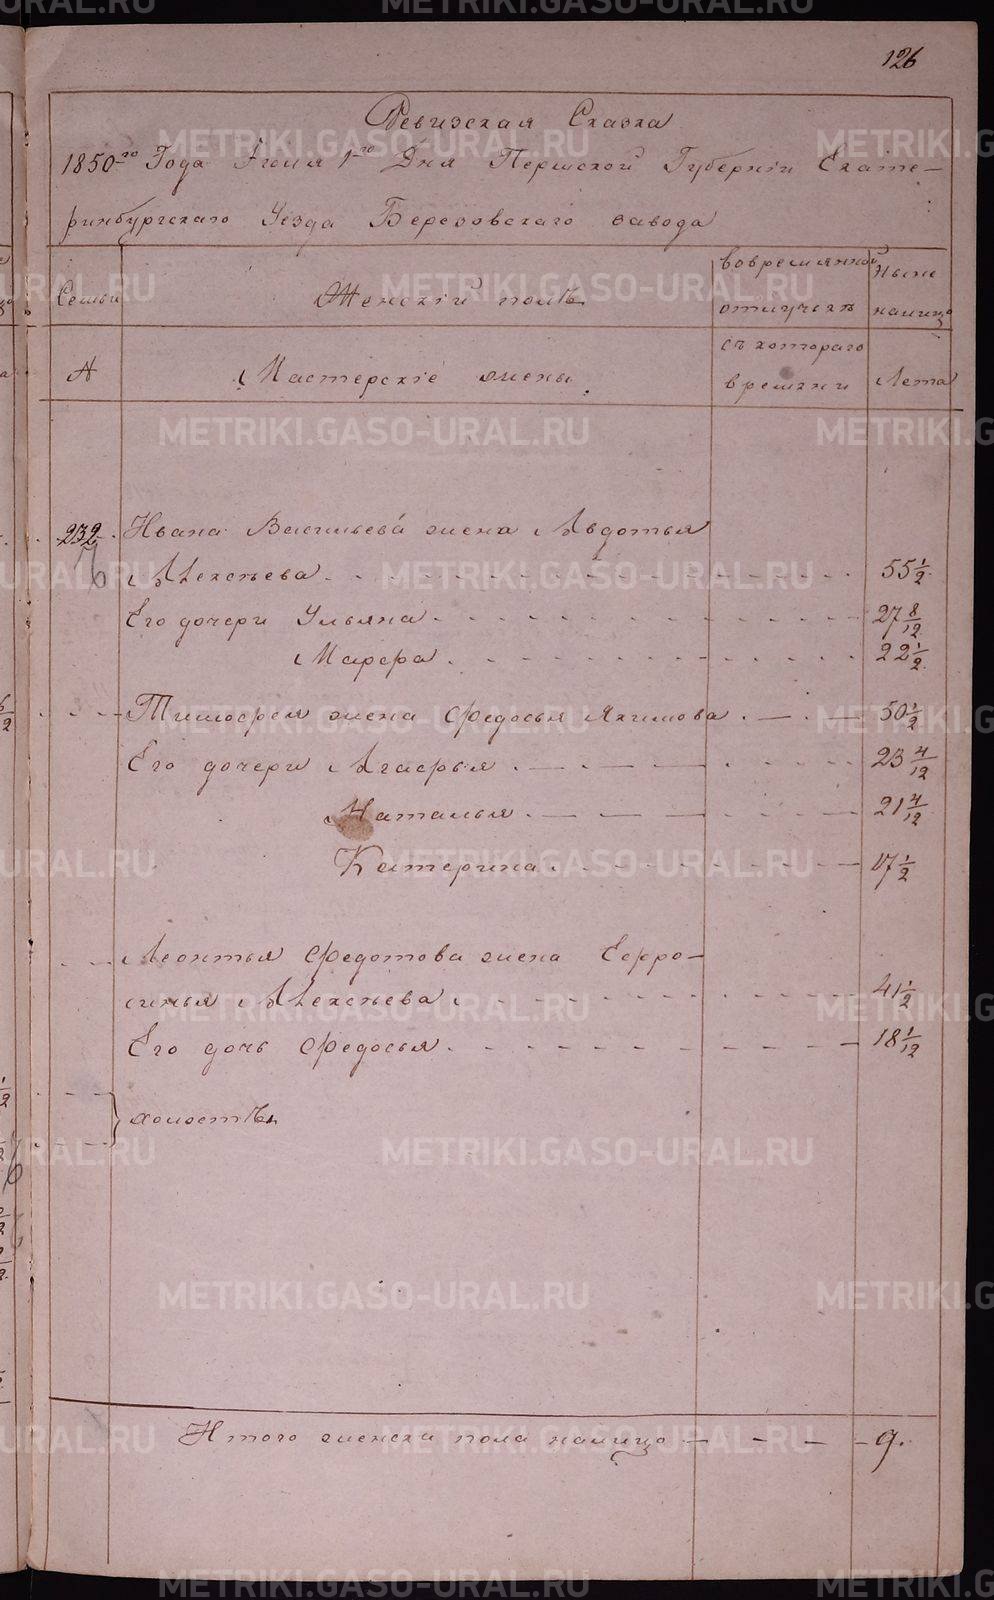 126
Ревизская Сказка
1850-го Года Іюня 1-го Дня Пермской Губерніи Екате-
ринбургскаго Уезда Березовскаго завода
Семьи
Женскій полъ
вовремянной
отлучкѣ
Ныне
налицо
№
Мастерскіе жены
съ котораго
времяни
Лета
232
Ивана Васильева жена Авдотья
Алексѣева 55 1/2
Его дочери Ульяна 27 8/12
Марфа 22 1/2
Тимофея жена Федосья Якимова 50 1/2
Его дочери Агафья 23 4/12
Наталья 21 4/12
Катерина 17 1/2
Леонтья Федотова жена Ефро-
синья Алексѣева 41 1/2
Его дочь Федосья 18 1/12
холостъ
Итого женска пола налицо 9.
METRIKI.GASO-URAL.RU